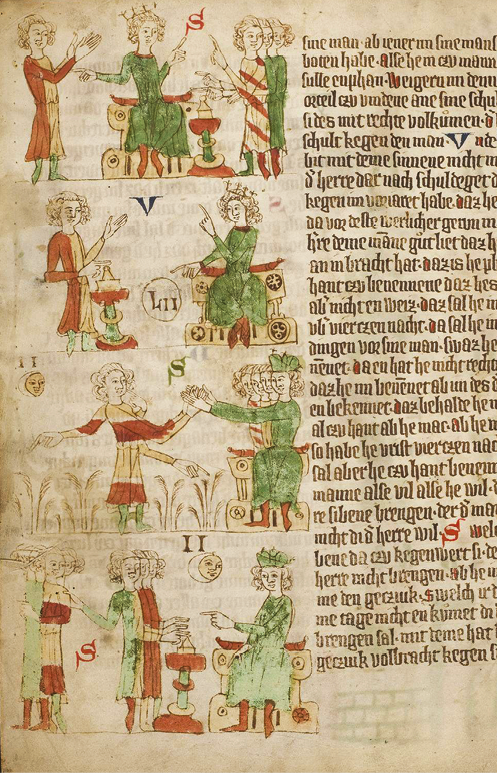 S
V
LII
II
S
II
S
sine man· ab iener im sine mans
boten habe· alse he im czu mann
sulle enphan· Weigert im denn
orteil czu vindene ane sine schu
si des mit rechte volkumen· d
schult kegen den man· V nde
bit mit deme sinnene nicht m
d herre dar nach schuldeget d
kegen im vorwaret habe· daz he
da vor deste werlicher gewin m
h're deme māne gut liet daz h
an in bracht hat· daz is he pf
hant czu benennene daz he s
ab' nicht en weiz· daz sal he in
vb' vierczen nacht· da sal he im
dingen vor sine man· swaz he
nēnet· da en hat he nicht rechte
daz he im benēnet ab im des d
en bekennet· daz behalde he m
al czu hant ab he mac· ab he w
so habe he vrist vierczen nac
sal aber he czu hant benenn
manne alse vil alse he wil· d
re sibene brengen· der d' man
nicht di d' herre wil· S welch
bene da czu kegenwert si· de
herre nicht brengen· ab he w
me den geczuk· Swelch ir d
me tage nicht en kumet di
brengen sal· mit deme hat h
geczuk volbracht kegen s